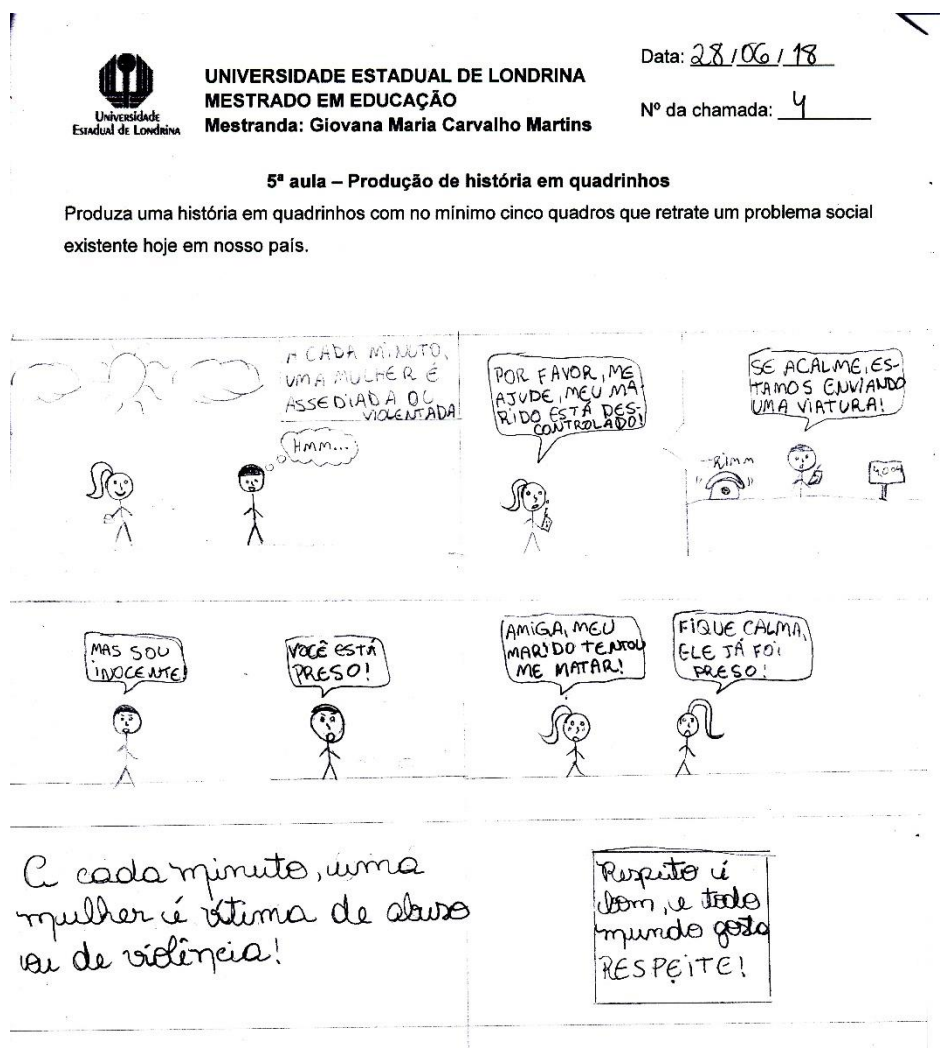 Universidade
Estadual de Londrina
UNIVERSIDADE ESTADUAL DE LONDRINA
MESTRADO EM EDUCAÇÃO
Mestranda: Giovana Maria Carvalho Martins
Data: 28/06/18
Nº da chamada: 4
5ª aula – Produção de história em quadrinhos
Produza uma história em quadrinhos com no mínimo cinco quadros que retrate um problema social
existente hoje em nosso país.
A CADA MINUTO,
UMA MULHER É
ASSEDIADA OU
VIOLENTADA
HMM...
POR FAVOR, ME
AJUDE, MEU MA
RIDO ESTÁ DES-
CONTROLADO!
SE ACALME, ES-
TAMOS ENVIANDO
UMA VIATURA!
RIMM
MAS SOU
INOCENTE!
VOCÊ ESTÁ
PRESO!
AMIGA, MEU
MARIDO TENTOU
ME MATAR!
FIQUE CALMA,
ELE JÁ FOI
PRESO!
A cada minuto, uma
mulher é vítima de abuso
ou de violência!
Respeito é
bom, e todo
mundo gosta
RESPEITE!